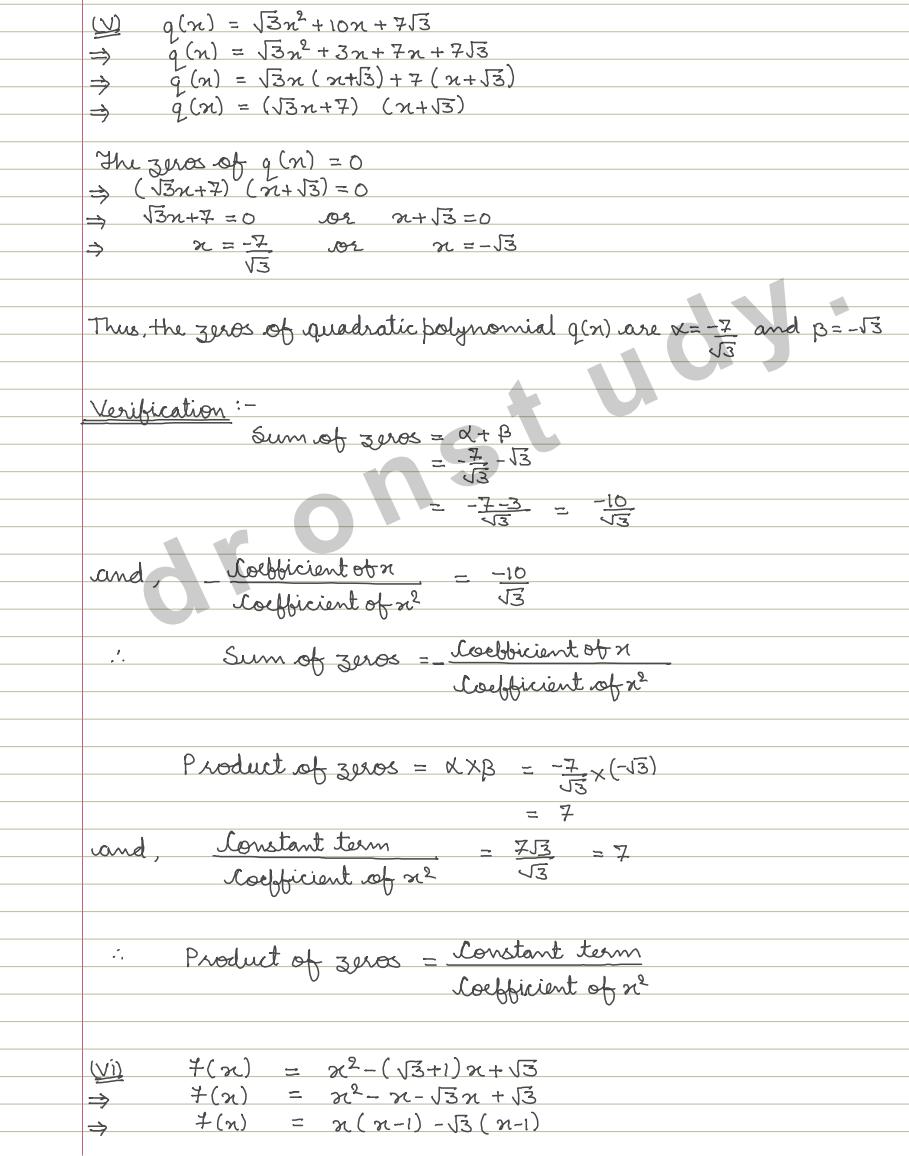 (V) q(x) = √3x² + 10x + 7√3
⇒ q(x) = √3x² + 3x + 7x + 7√3
⇒ q(x) = √3x (x+√3) + 7 (x+√3)
⇒ q(x) = (√3x+7) (x+√3)
The zeros of q(x) = 0
⇒ (√3x+7) (x+√3) = 0
⇒ √3x+7 = 0 or x+√3 = 0
⇒ x = -7/√3 or x = -√3
Thus, the zeros of quadratic polynomial q(x) are α = -7/√3 and β = -√3
Verification :-
Sum of zeros = α + β
= -7/√3 - √3
= -7-3/√3 = -10/√3
and, - Coefficient of x / Coefficient of x² = -10/√3
∴ Sum of zeros = - Coefficient of x / Coefficient of x²
Product of zeros = α × β = -7/√3 × (-√3)
= 7
and, Constant term / Coefficient of x² = 7√3/√3 = 7
∴ Product of zeros = Constant term / Coefficient of x²
(Vi) f(x) = x² - (√3+1)x + √3
⇒ f(x) = x² - x - √3x + √3
⇒ f(x) = x (x-1) - √3 (x-1)
dronstudy.